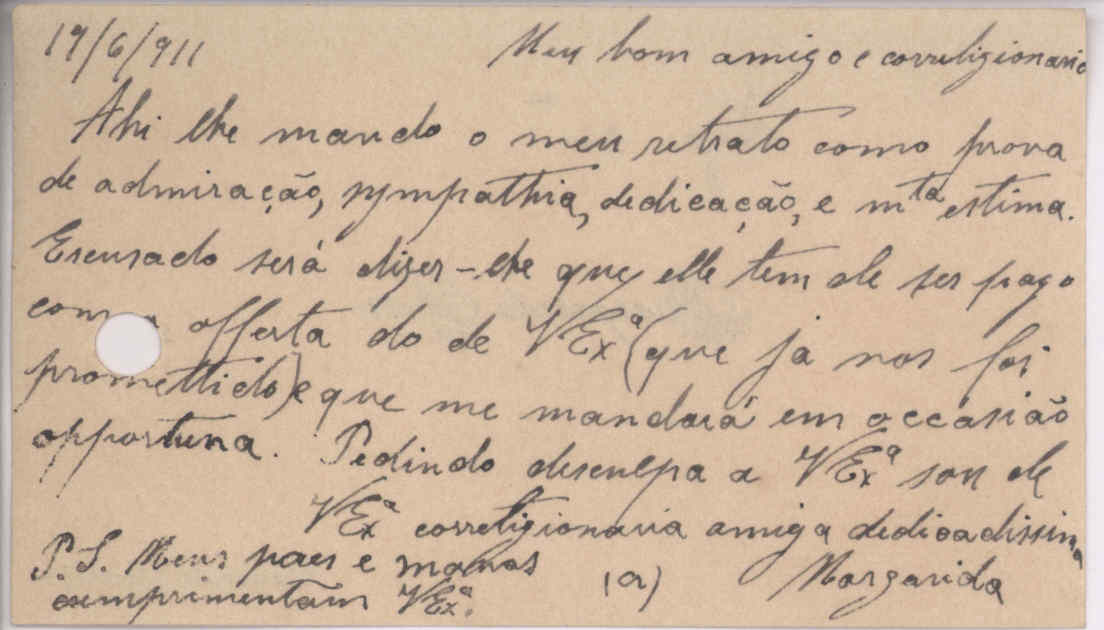 19/6/911 Meu bom amigo e correligionario
Ahi lhe mando o meu retrato como prova
de admiração, sympathia, dedicação, e mta estima.
Escusado será dizer-lhe que elle tem de ser pago
com a offerta do de VExª (que ja nos foi
promettido) e que me mandará em occasião
opportuna. Pedindo desculpa a VExª sou de
VExª correligionaria amiga dedicadissima
P.S. Meus paes e manos (a) Margarida
cumprimentam VExª.